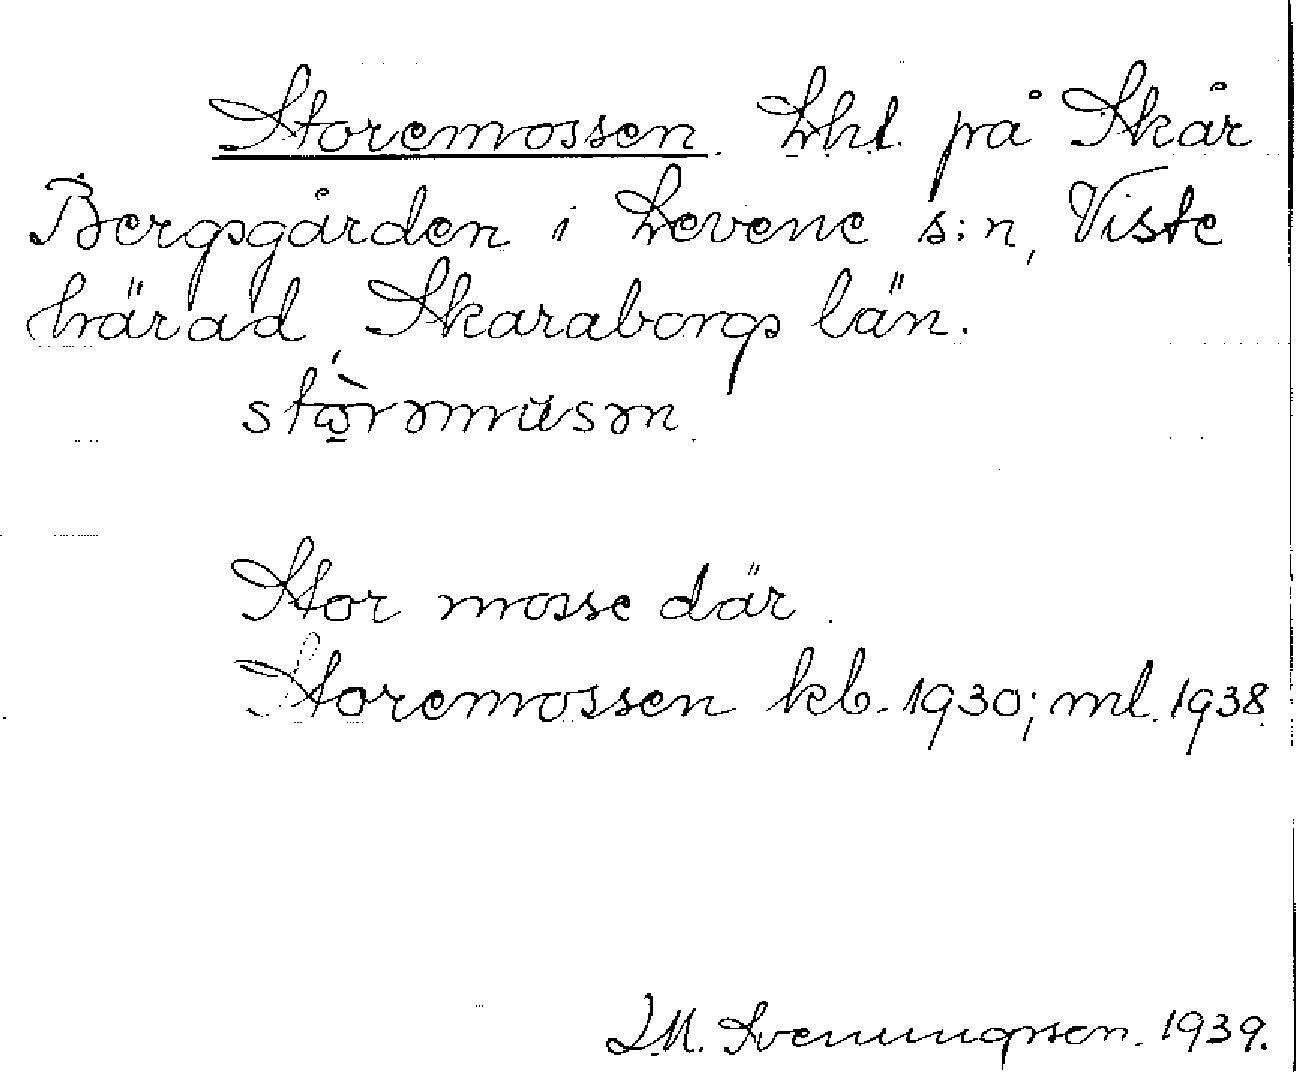 Storemossen. Lht. på Skår
Bergsgården i Levene s:n, Viste
härad, Skaraborgs län.
Stor mosse där.
Storemossen kb. 1930; ml. 1938.
J.M. Svenungsson. 1939.